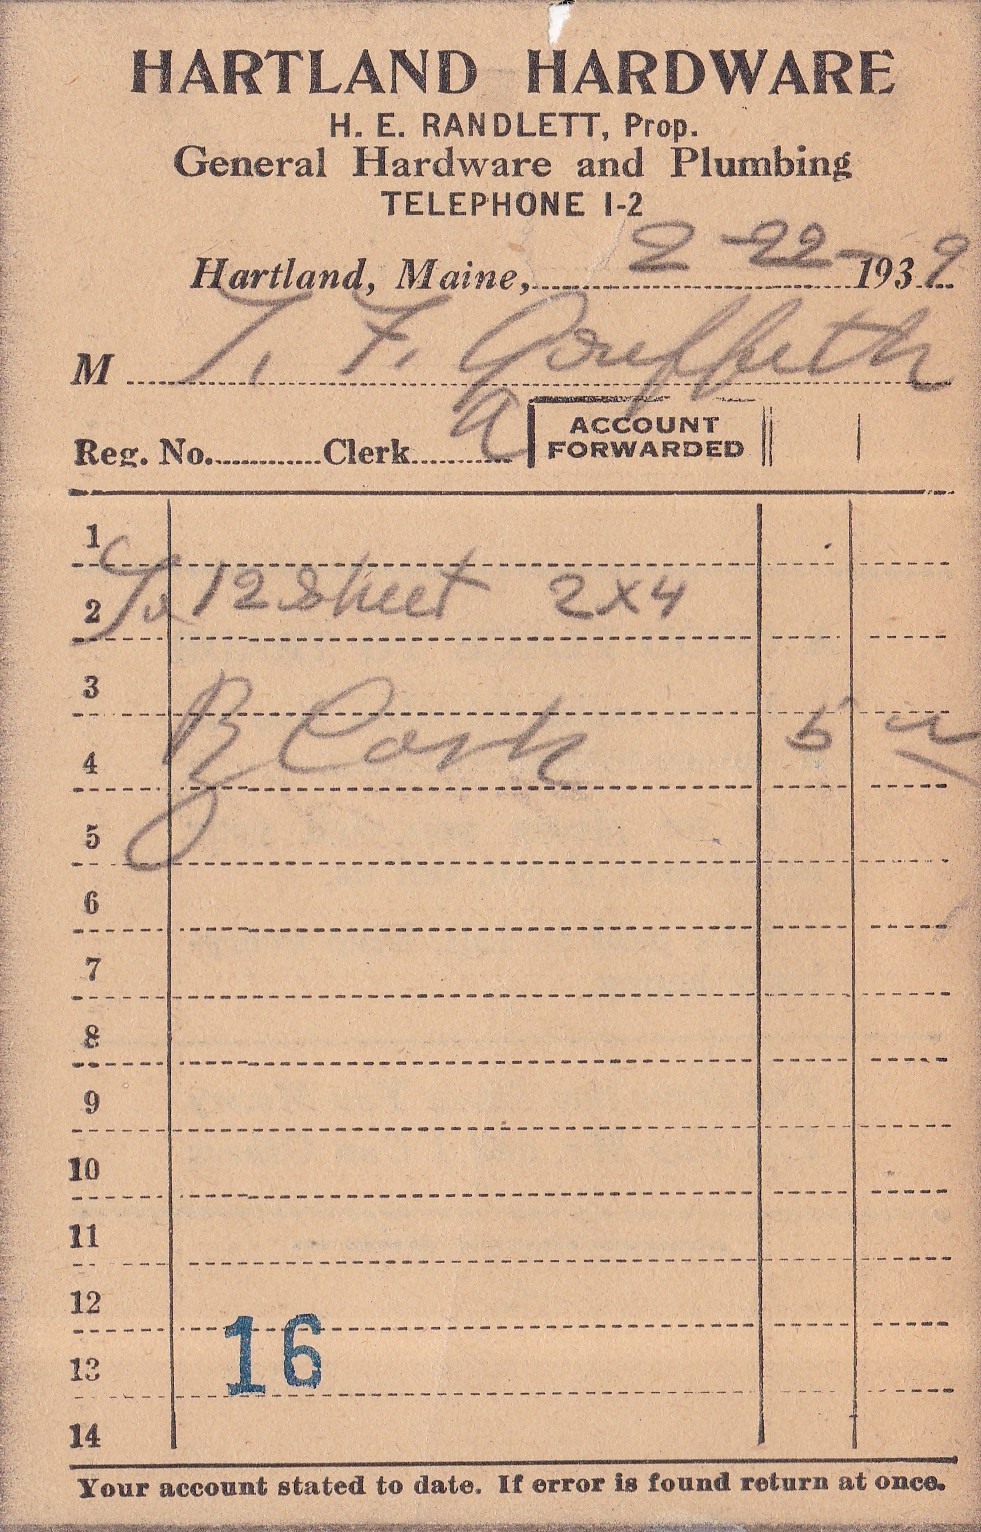 HARTLAND HARDWARE
H. E. RANDLETT, Prop.
General Hardware and Plumbing
TELEPHONE 1-2
Hartland, Maine, 2-22-1939
M T. F. Griffeth
Reg. No. Clerk A ACCOUNT FORWARDED
1
2 To 12 Sheet 2x4
3
4 By Cash 5
5
6
7
8
9
10
11
12
13 16
14
Your account stated to date. If error is found return at once.